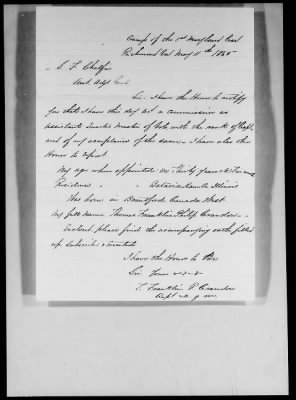 Camp of the 1st Maryland Cav
Richmond Va May 11th 1865
S. F. Chalfin
Asst. Adjt Genl.
Sir. I have the Honor to notify
you that I have this day got a commission as
assistant Quarter Master of Vols with the rank of Capt.
and of my acceptance of the same. I have also the
Honor to report
My age when appointed Thirty years &
Residence Batavia Kane Co Illinois
Was born in Brantford Canada West
My full name Thomas Franklin Philip Crandon.
Enclosed please find the accompanying oath filled
up, subscribed &
I have the Honor to Be
Sir Your
T. Franklin P. Crandon
Capt & A. Q. M.